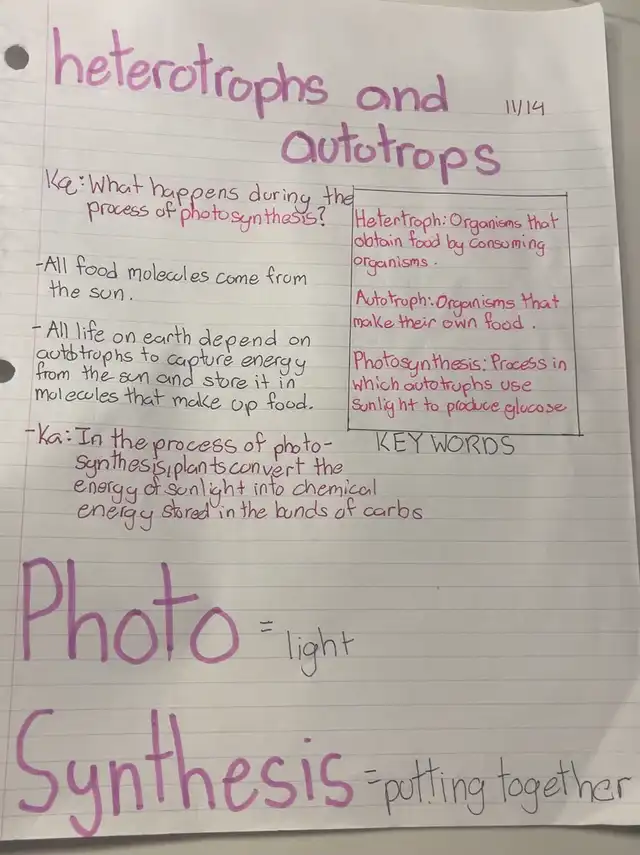 heterotrophs and
11/14
autotrops
Kq: What happens during the
process of photosynthesis?
-All food molecules come from
the sun.
- All life on earth depend on
autotrophs to capture energy
from the sun and store it in
molecules that make up food.
-Ka: In the process of photo-
synthesis, plants convert the
energy of sunlight into chemical
energy stored in the bunds of carbs
Hetertroph: Organisms that
obtain food by consuming
organisms.
Autotroph: Organisms that
make their own food.
Photosynthesis: Process in
which autotruphs use
sunlight to produce glucose
KEY WORDS
Photo = light
Synthesis = putting together